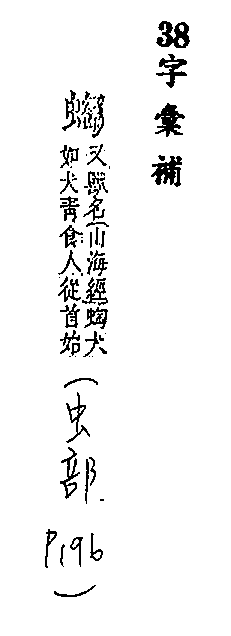 38
字彙補
又獸名山海經蜪犬
如犬青食人從首始
(虫部.
P196
)